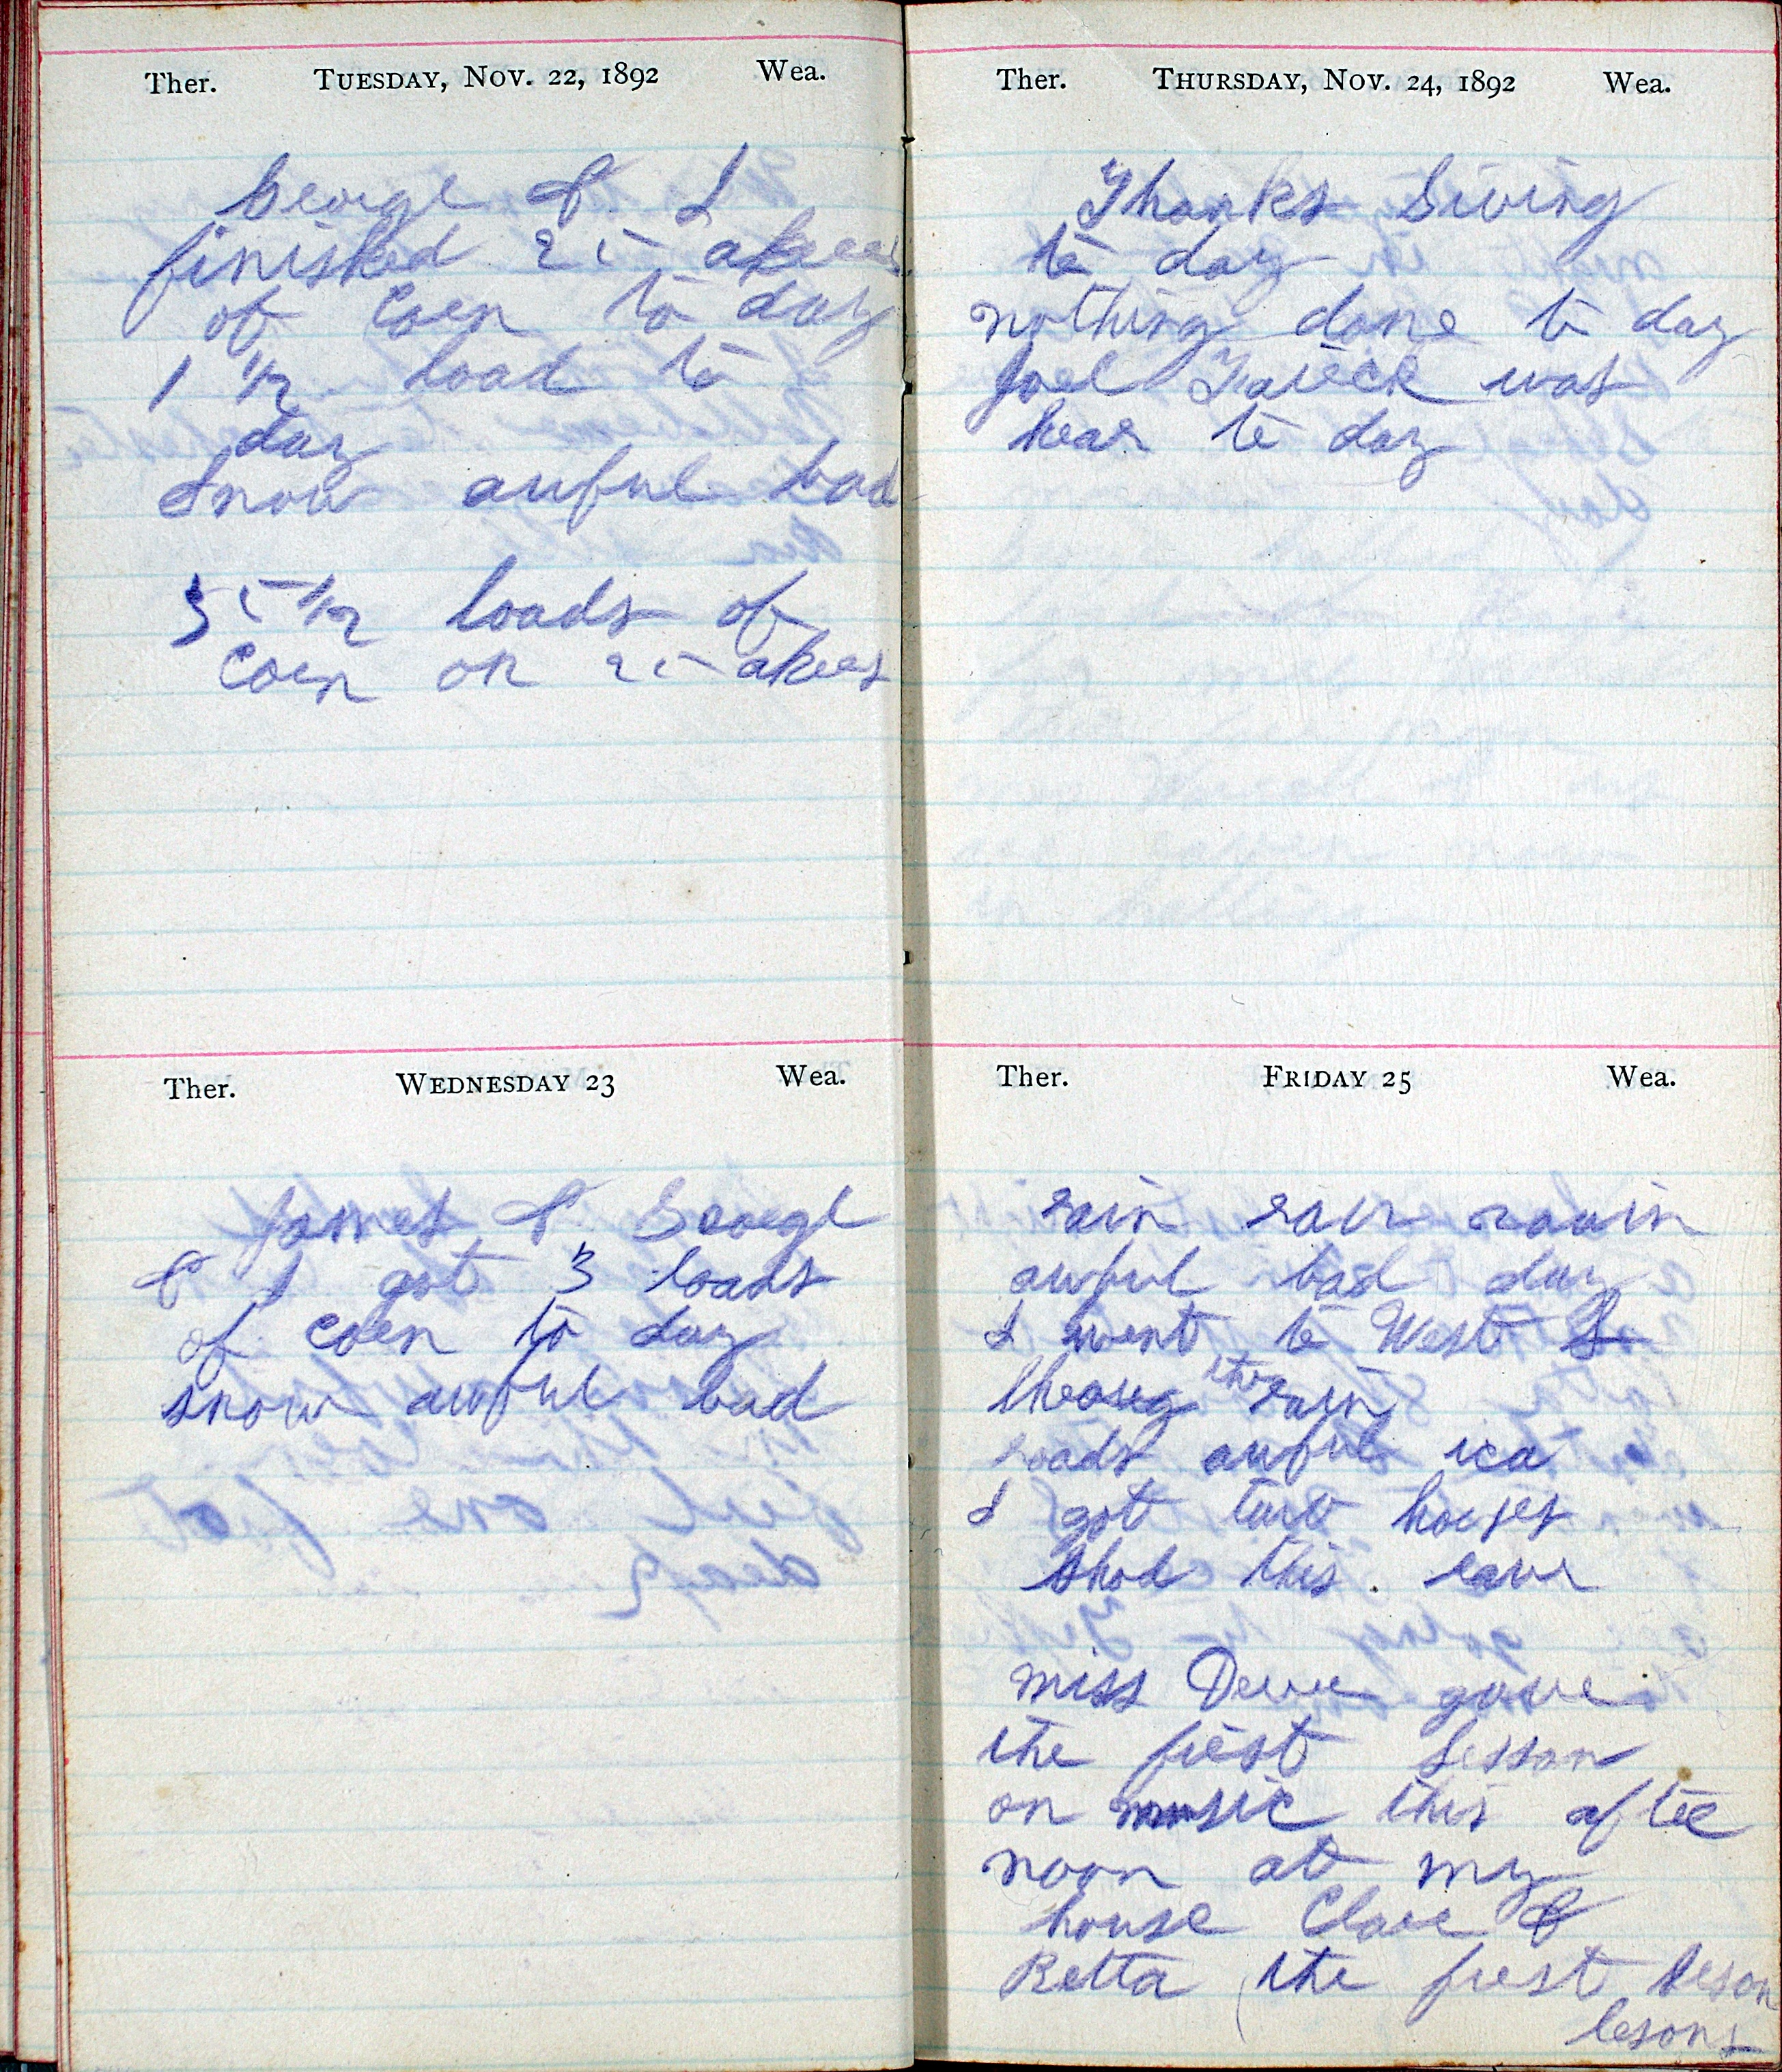 Ther. TUESDAY, NOV. 22, 1892 Wea.
George & I
finished 25 akers
of Corn to day
1 1/2 load to
day
Snow awful bad
55 1/2 loads of
Corn on 25 akers
Ther. WEDNESDAY 23 Wea.
James & George
& I got 3 loads
of corn to day
snow awful bad
Ther. THURSDAY, NOV. 24, 1892 Wea.
Thanks Giving
to day
nothing done to day
Joel was
hear to day
Ther. FRIDAY 25 Wea.
rain rain raain
awful bad day
I went to West
the rain
roads awful ica
I got two horses
shod this
miss gave
the first Lesson
on music this after
noon at my
house Clare &
Retta the first Leson
lesons